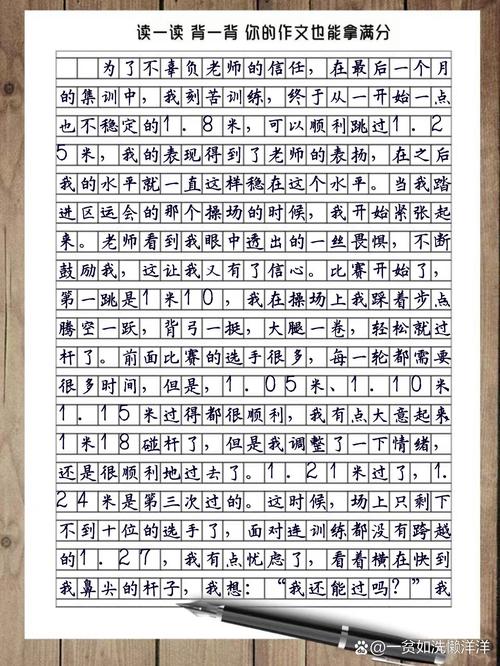 读一读 背一背 你的作文也能拿满分
为了不辜负老师的信任，在最后一个月
的集训中，我刻苦训练，终于从一开始一点
也不稳定的1.8米，可以顺利跳过1.2
5米，我的表现得到了老师的表扬，在之后
我的水平就一直这样稳在这个水平。当我踏
进区运会的那个操场的时候，我开始紧张起
来。老师看到我眼中透出的一丝畏惧，不断
鼓励我，这让我又有了信心。比赛开始了，
第一跳是1米10，我在操场上我踩着步点
腾空一跃，背弓一挺，大腿一卷，轻松就过
杆了。前面比赛的选手很多，每一轮都需要
很多时间，但是，1.05米、1.10米
1.15米过得都很顺利，我有点大意起来
1米18碰杆了，但是我调整了一下情绪，
还是很顺利地过去了。1.21米过了，1.
24米是第三次过的。这时候，场上只剩下
不到十位的选手了，面对连训练都没有跨越
的1.27，我有点忧虑了，看着横在快到
我鼻尖的杆子，我想：“我还能过吗？”我
@一贫如洗懒洋洋